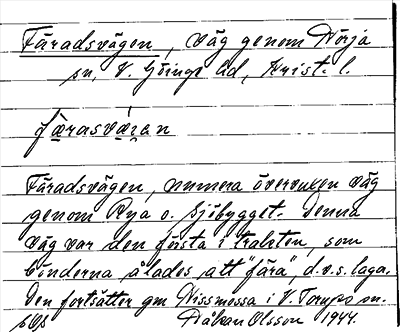 Färadsvägen, väg genom Nörja
sn, V. Göinge hd, Krist. l.
färasvä́ꭋen
Färadsvägen, numera övervuxen väg
genom Rya o. Sjöbygget. Denna
väg var den första i trakten, som
bönderna ålades att "fära" d.v.s. laga.
Den fortsätter gm Nissmossa i V. Torups sn.
Håkan Olsson 1944.